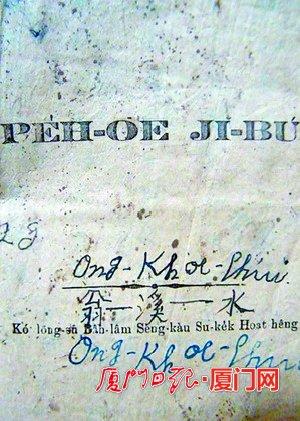 PE̍H-ŌE JĪ-BÚ
Ong-Khoe-Chúi
翁-溪-水
Kó͘ lōng-sū Bân-lâm Sèng-kàu Su-kio̍k Hoat hêng
Ong-Khoe-Chúi
厦门日报·厦门网